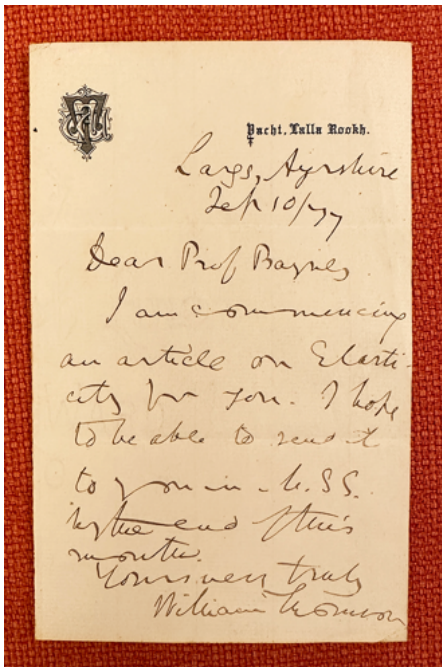 Yacht, Lalla Rookh.
Largs, Ayrshire
Sep 10/77
Dear Prof Baynes
I am commencing
an article on Elasti-
city for you. I hope
to be able to send it
to you in M.SS.
by the end of this
month.
Yours very truly
William Thomson